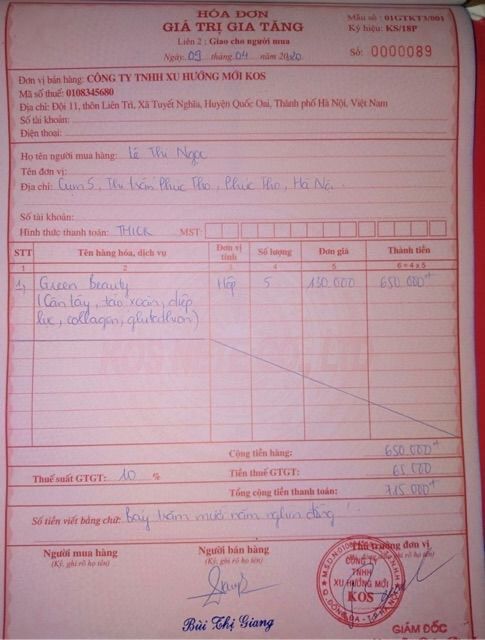 HÓA ĐƠN
GIÁ TRỊ GIA TĂNG
Liên 2 : Giao cho người mua
Ngày 09 tháng 04 năm 2020
Mẫu số : 01GTKT3/001
Ký hiệu: KS/18P
Số: 0000089
Đơn vị bán hàng: CÔNG TY TNHH XU HƯỚNG MỚI KOS
Mã số thuế: 0108345680
Địa chỉ: Đội 11, thôn Liên Trì, Xã Tuyết Nghĩa, Huyện Quốc Oai, Thành phố Hà Nội, Việt Nam
Số tài khoản:
Điện thoại:
Họ tên người mua hàng: Lê Thị Ngọc
Tên đơn vị:
Địa chỉ: Cụm 5, Thị trấn Phúc Thọ, Phúc Thọ, Hà Nội
Số tài khoản:
Hình thức thanh toán: TM/CK MST:
STT Tên hàng hóa, dịch vụ Đơn vị tính Số lượng Đơn giá Thành tiền
1 2 3 4 5 6=4x5
1, Green Beauty Hộp 5 130.000 650.000đ
(Cần tây, tảo xoắn, diệp
lục, collagen, glutathion)
Cộng tiền hàng: 650.000đ
Thuế suất GTGT: 10 % Tiền thuế GTGT: 65.000
Tổng cộng tiền thanh toán: 715.000đ
Số tiền viết bằng chữ: Bảy trăm mười năm nghìn đồng
Người mua hàng Người bán hàng Thủ trưởng đơn vị
(Ký, ghi rõ họ tên) (Ký, ghi rõ họ tên)
CÔNG TY
TNHH
XU HƯỚNG MỚI
KOS
Bùi Thị Giang
GIÁM ĐỐC